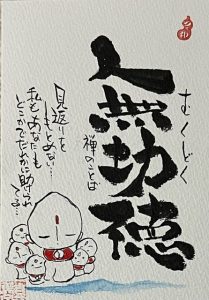 むくどく
無功徳
禅のことば
見返りを
もとめない…
私もあなたも
どこかでだれかに助けられ
てる…